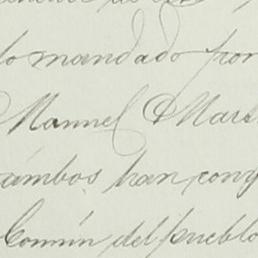 lo mandado por
Manuel Mar
ambos han cony
Común del pueblo